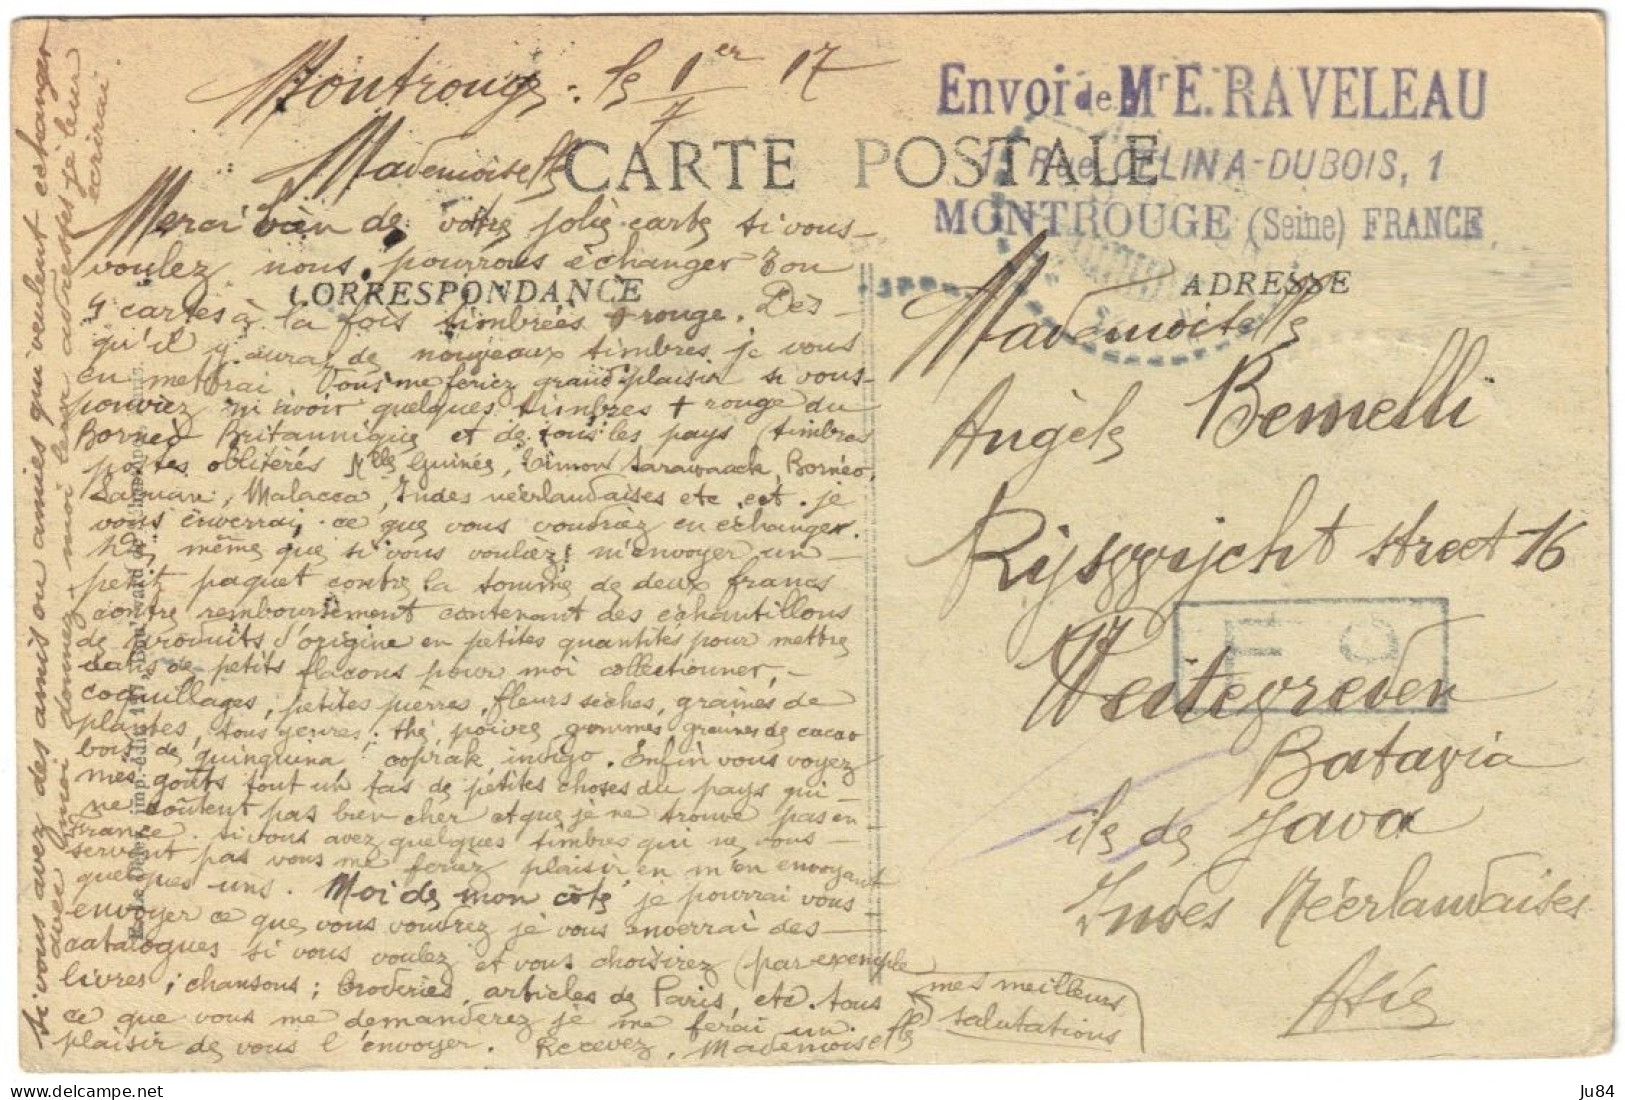 Montrouge, le 1er/7 17
Mademoiselle
CARTE POSTALE
Merci bien de votre jolie carte si vous-
voulez nous pourrons échanger 3 ou
CORRESPONDANCE
4 cartes à la fois timbrées + rouge. Dès-
qu'il y aura de nouveaux timbres je vous
en mettrai. Vous me feriez grand plaisir si vous-
pouviez m'avoir quelques timbres + rouge du
Bornéo Britannique et de tous les pays (timbres
postes oblitérés Nlle Guinée, Timor, Sarawaack, Bornéo,
Labuan, Malacca, Indes néerlandaises etc. ect. je
vous enverrai ce que vous voudriez en échange.
De même que si vous vouliez m'envoyer un-
petit paquet contre la somme de deux francs
contre remboursement contenant des échantillons
de produits d'origine en petites quantités pour mettre
dans de petits flacons pour moi collectionner, -
coquillages, petites pierres, fleurs sèches, graines de
plantes, tous genres: thé, poivre, gommes, graines de cacao
bois de quinquina coprak indigo. Enfin vous voyez
mes goûts tout un tas de petites choses du pays qui-
ne coûtent pas bien cher et que je ne trouve pas en-
France. Si vous avez quelques timbres qui ne vous-
servent pas vous me feriez plaisir en m'en envoyant
quelques uns. Moi de mon côté je pourrai vous-
envoyer ce que vous voudrez je vous enverrai des-
catalogues si vous voulez et vous choisirez (par exemple
livres; chansons; Broderies, articles de Paris, etc. tous
ce que vous me demanderez je me ferai un
plaisir de vous l'envoyer. Recevez, Mademoiselle
mes meilleurs
salutations
si vous avez des amis ou amies qui veulent échanger
avec moi donnez-moi leur adresses je leur
écrirai.
Envoi de Mr E. RAVELEAU
1, Rue CELINA-DUBOIS, 1
MONTROUGE (Seine) FRANCE
ADRESSE
Mademoiselle
Angèle Bemelli
Rijswijcht street 16
Weltevreden
F O
Batavia
île de Java
Indes Néerlandaises
Asie
Ju84